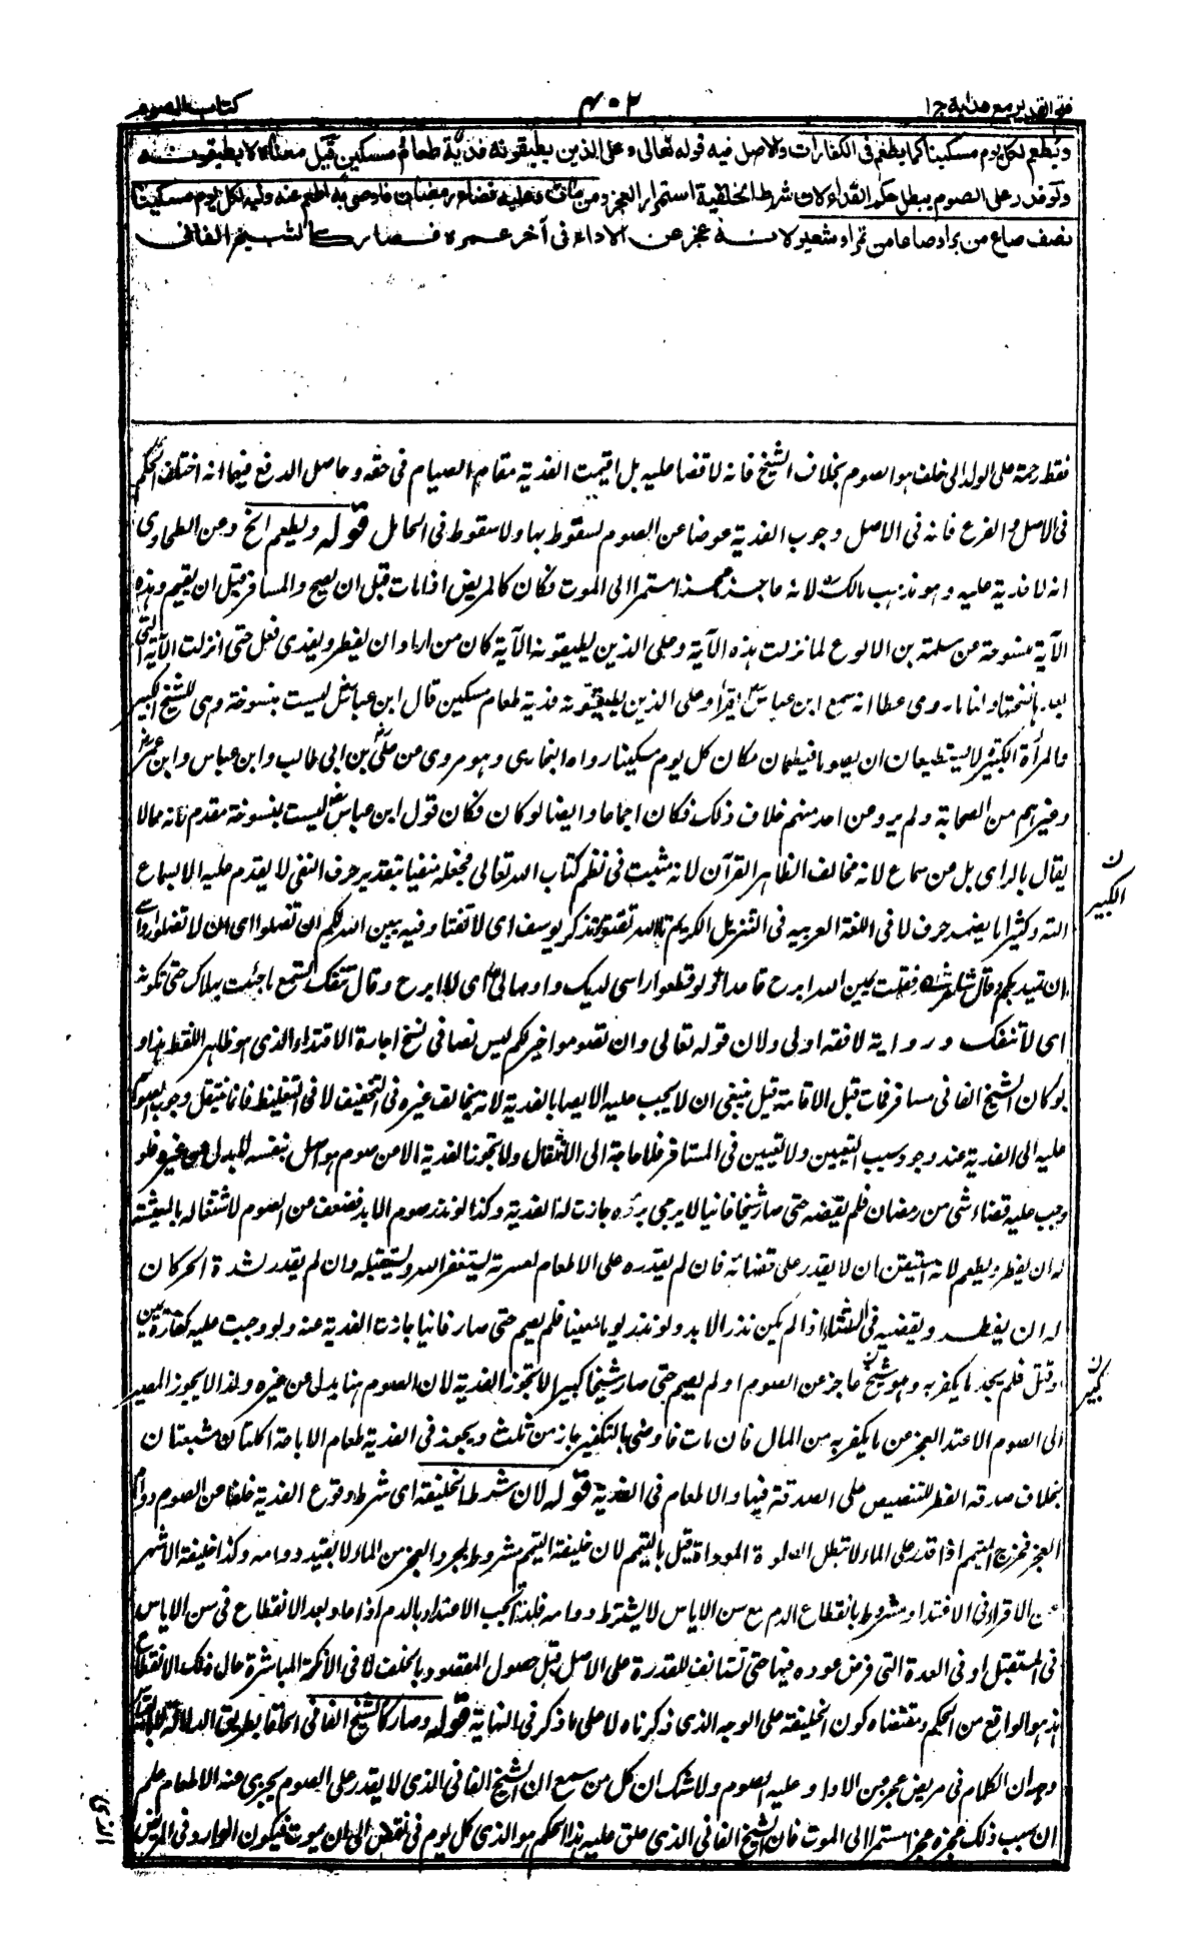 فتح القدير مع هداية ج ١
٤٠٢
كتاب الصوم
ويطعم لكل يوم مسكينا كما يطعم فى الكفارات والاصل فيه قوله تعالى وعلى الذين يطيقونه فدية طعام مسكين قيل معناه لا يطيقونه
ولو قدر على الصوم يبطل حكم الفداء لان شرط الخلفية استمرار العجز ومن مات وعليه قضاء رمضان فاوصى به اطعم عنه وليه لكل يوم مسكينا
نصف صاع من بر او صاعا من تمر او شعير لانه عجز عن الاداء فى آخر عمره فصار كالشيخ الفانى
فقط رحمة على الولد الى خلف هو الصوم بخلاف الشيخ فانه لا قضا عليه بل اقيمت الفدية مقام الصيام فى حقه وحاصل الدفع فيها انه اختلف الحكم
فى الاصل والفرع فانه فى الاصل وجوب الفدية عوضا عن الصوم لسقوطه بها ولا سقوط فى الحامل قوله ويطعم الخ وعن الطحاوى
انه لا فدية عليه وهو مذهب مالك لانه عاجز عجزا استمر الى الموت فكان كالمريض اذا مات قبل ان يصح والمسافر قبل ان يقيم وهذه
الآية منسوخة عن سلمة بن الاكوع لما نزلت هذه الآية وعلى الذين يطيقونه الآية كان من اراد ان يفطر ويفدى فعل حتى انزلت الآية التى
بعدها نسختها ولنا ما روى عطا انه سمع ابن عباس يقرأ وعلى الذين يطيقونه فدية طعام مسكين قال ابن عباس ليست بمنسوخة وهى للشيخ الكبير
والمرأة الكبيرة لا يستطيعان ان يصوما فيطعمان مكان كل يوم مسكينا رواه البخارى وهو مروى عن على بن ابى طالب وابن عباس وابن عمر
وغيرهم من الصحابة ولم يرو عن احد منهم خلاف ذلك فكان اجماعا وايضا لو كان فكان قول ابن عباس ليست بمنسوخة مقدم لانه مما لا
يقال بالراى بل من سماع لانه مخالف لظاهر القرآن لانه مثبت فى نظم كتاب الله تعالى فجعله منفيا بتقدير حرف النفى لا يقدم عليه الا بسماع
البتة وكثيرا ما يضمر حرف لا فى اللغة العربيه فى التنزيل الكريم تالله تفتؤ تذكر يوسف اى لا تفتا وفيه يبين الله لكم ان تضلوا اى ان لا تضلوا رواسى
ان تميد بكم وقال شاعر فقلت يمين الله ابرح قاعدا ولو قطعوا راسى لديك واوصالى اى لا ابرح وقال تنفك تسمع ما حييت بهالك حتى تكونه
اى لا تنفك ورواية لا فقه اولى ولان قوله تعالى وان تصوموا خير لكم ليس نصا فى نسخ اجازة الافتداء الذى هو ظاهر اللفظ هذا و
لو كان الشيخ الفانى مسافرا فمات قبل الاقامة قيل ينبغى ان لا يجب عليه الايصا بالفدية لانه يخالف غيره فى التخفيف لا فى التغليظ فانما ينتقل وجوب الصوم
عليه الى الفدية عند وجود سبب التعيين ولا تعيين فى المسافر فلا حاجة الى الانتقال ولا تجوز الفدية الا من صوم هو اصل بنفسه لا بدل عن غيره فلو
وجب عليه قضاء شئ من رمضان فلم يقضه حتى صار شيخا فانيا لا يرجى برؤه جازت له الفدية وكذا لو نذر صوم الابد فضعف عن الصوم لاشتغاله بالمعيشة
له ان يفطر ويطعم لانه استيقن ان لا يقدر على قضائه فان لم يقدر على الاطعام لعسرته يستغفر الله ويستقيله وان لم يقدر لشدة الحر كان
له ان يفطر ويقضيه فى الشتاء اذا لم يكن نذر الابد ولو نذر يوما معينا فلم يصم حتى صار فانيا جازت الفدية عنه ولو وجبت عليه كفارة يمين
او قتل فلم يجد ما يكفر به وهو شيخ عاجز عن الصوم او لم يصم حتى صار شيخا كبيرا لا تجوز الفدية لان الصوم هنا بدل عن غيره ولذا لا يجوز المصير
الى الصوم الا عند العجز عن ما يكفر به من المال فان مات فاوصى بالتكفير جاز من ثلثه ويجوز فى الفدية طعام الاباحة اكلتان مشبعتان
بخلاف صدقة الفطر للتنصيص على الصدقة فيها والاطعام فى الفدية قوله لان شرط الخليفة اى شرط وقوع الفدية خلفا عن الصوم دوام
العجز فخرج المتيمم اذا قدر على الماء لا تبطل الصلوة المؤداة قبل بالتيمم لان خليفة التيمم مشروط بمجرد العجز عن الماء لا بقيد دوامه وكذا خليفة الاشهر
عن الاقراء فى الاعتداد مشروط بانقطاع الدم مع سن الاياس لا يشترط دوامه فلذا يجب الاعتداد بالدم اذا عاد بعد الانقطاع فى سن الاياس
فى المستقبل او فى العدة التى فرض عوده فيها حتى تستانف للقدرة على الاصل قبل حصول المقصود بالخلف لا فى الانكحة المباشرة حال ذلك الانقطاع
هذا هو الواقع من الحكم ومقتضاه كون الخليفة على الوجه الذى ذكرناه لا على ما ذكر فى النهاية قوله وصار كالشيخ الفانى الحاقا بطريق الدلالة لا بالقياس
وجهه ان الكلام فى مريض عجز عن الاداء وعليه الصوم ولا شك ان كل من سمع ان الشيخ الفانى الذى لا يقدر على الصوم يجزى عنه الاطعام علم
ان سبب ذلك عجزه عجزا مستمرا الى الموت فان الشيخ الفانى الذى علق عليه هذا الحكم هو الذى كل يوم فى نقص الى ان يموت فيكون الوارد فى المريض
ن
الكبير
ن
كبير